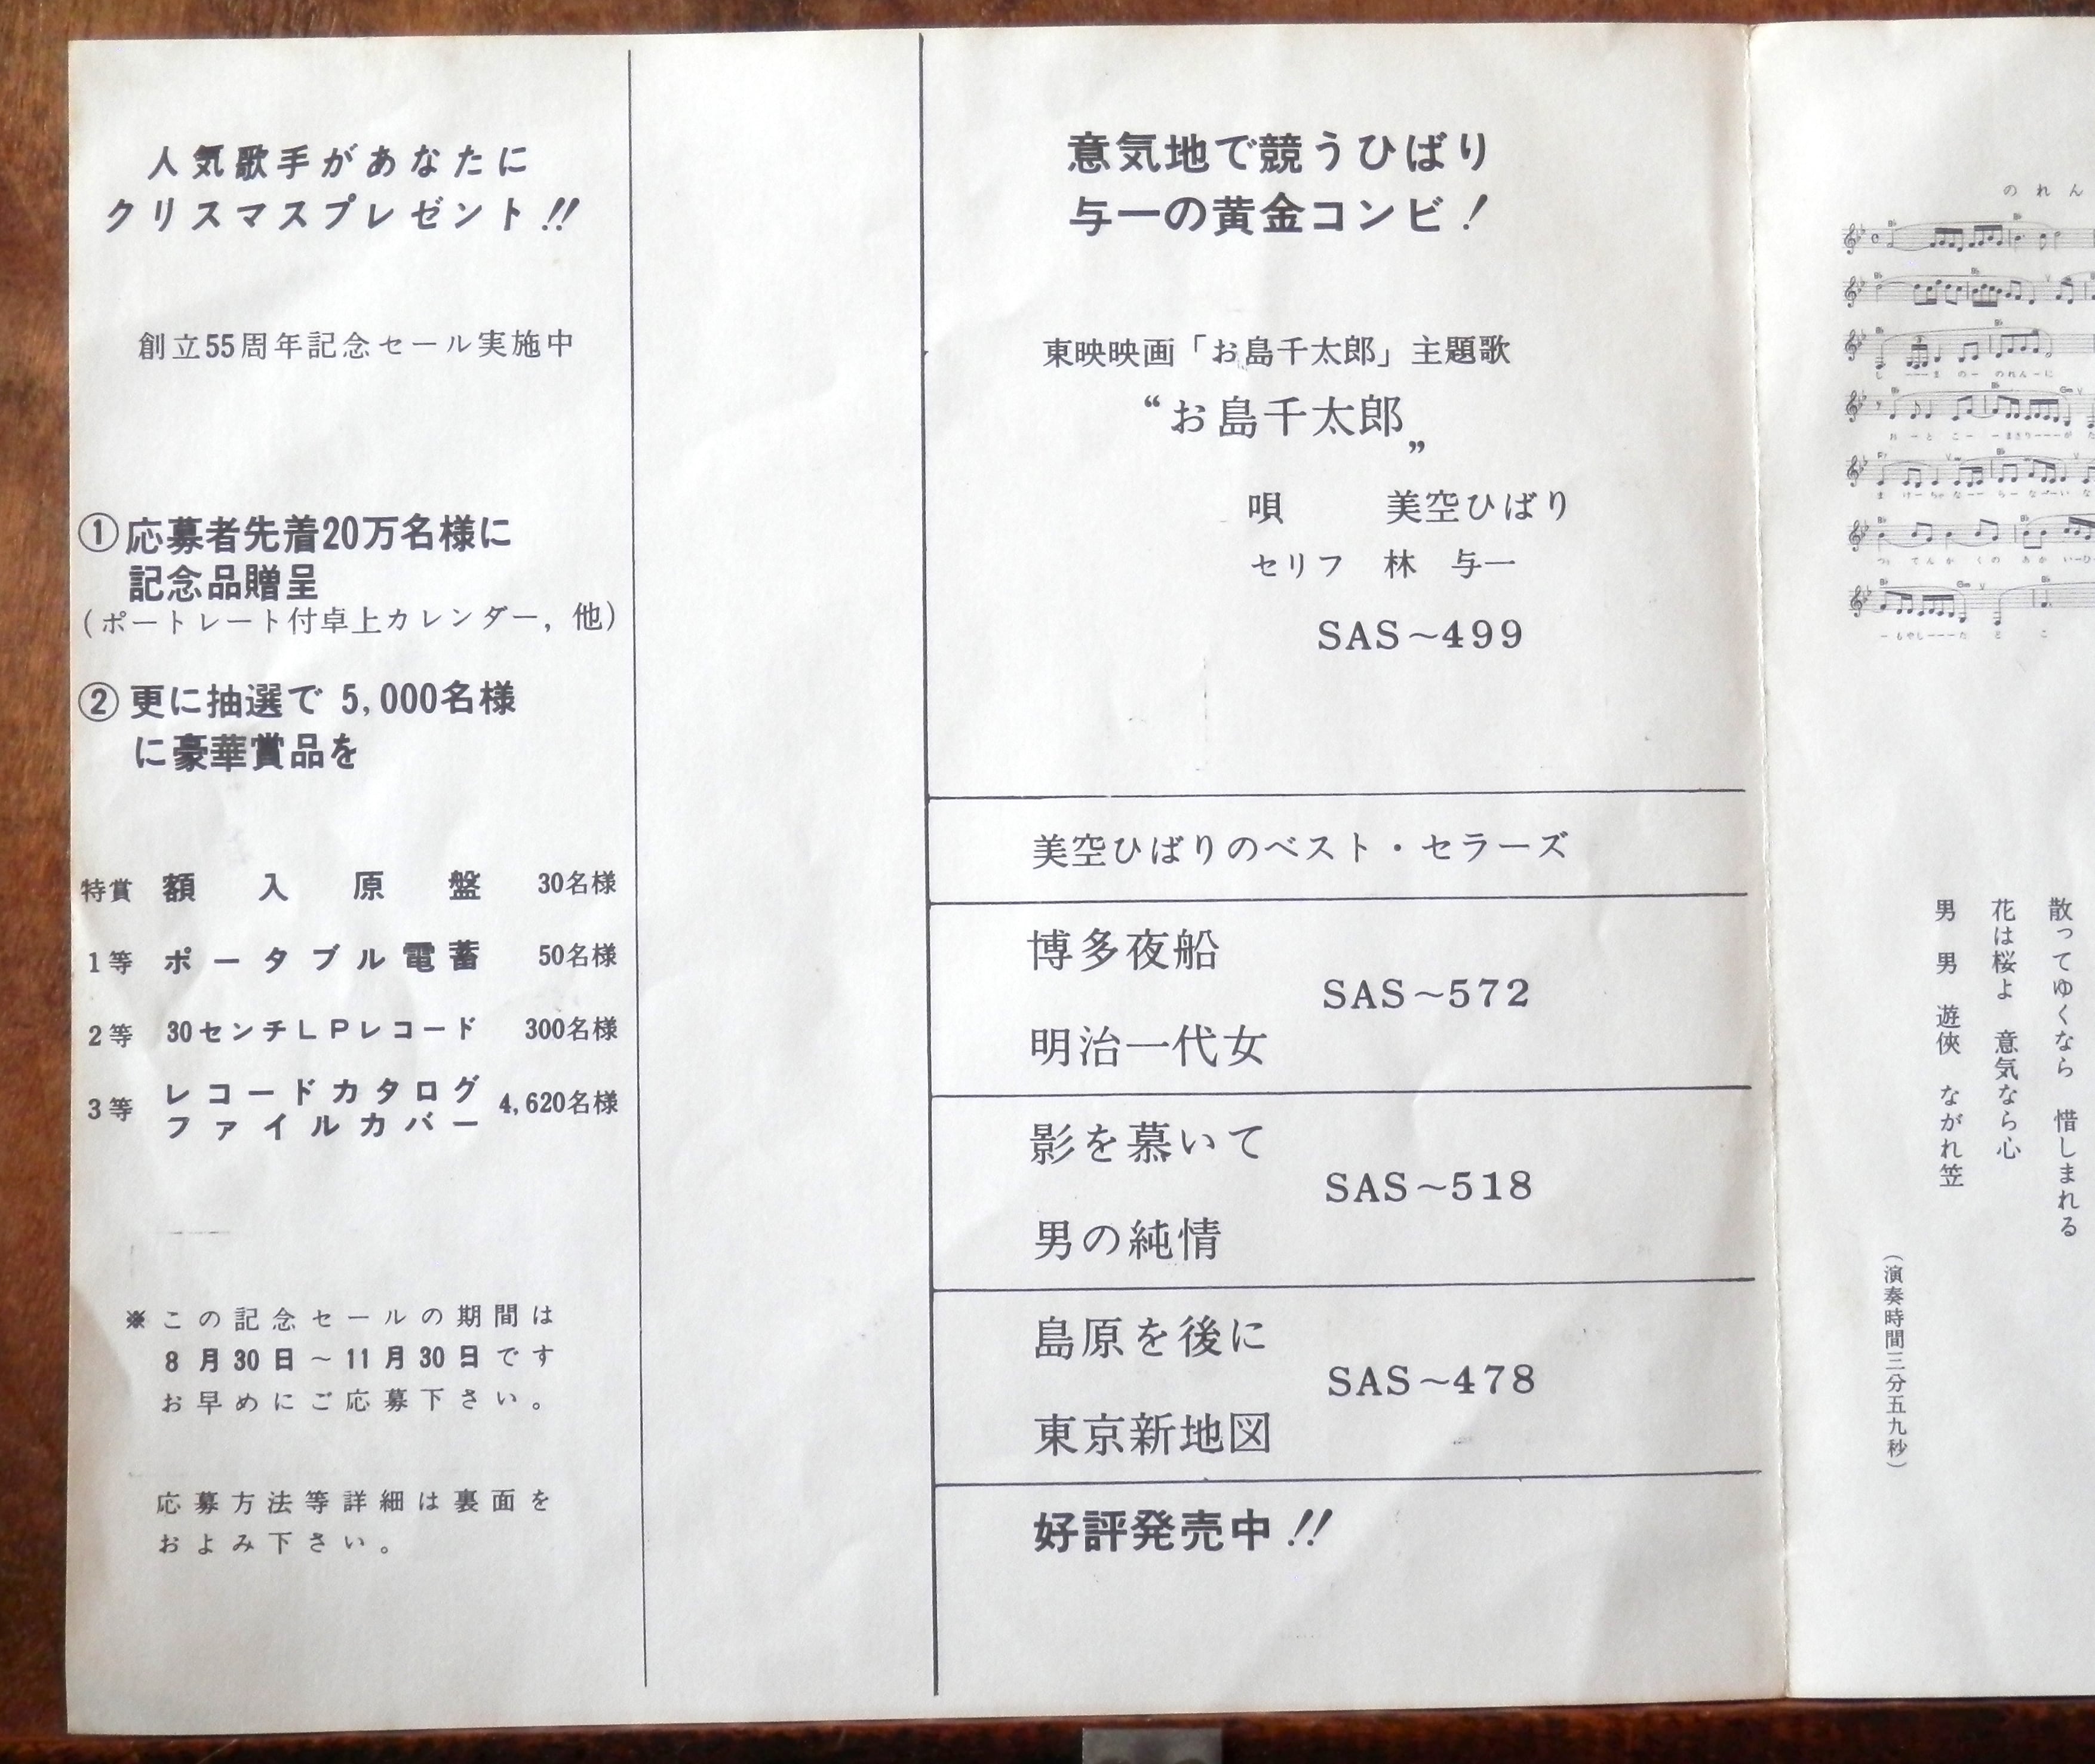 人気歌手があなたに
クリスマスプレゼント!!
創立55周年記念セール実施中
①応募者先着20万名様に
記念品贈呈
(ポートレート付卓上カレンダー, 他)
②更に抽選で 5,000名様
に豪華賞品を
特賞 額入原盤 30名様
1等 ポータブル電蓄 50名様
2等 30センチLPレコード 300名様
3等 レコードカタログ
ファイルカバー 4,620名様
※この記念セールの期間は
8月30日~11月30日です
お早めにご応募下さい。
応募方法等詳細は裏面を
およみ下さい。
意気地で競うひばり
与一の黄金コンビ!
東映映画「お島千太郎」主題歌
“お島千太郎„
唄 美空ひばり
セリフ 林 与一
SAS~499
美空ひばりのベスト・セラーズ
博多夜船
SAS~572
明治一代女
影を慕いて
SAS~518
男の純情
島原を後に
SAS~478
東京新地図
好評発売中!!
のれん
散ってゆくなら 惜しまれる
花は桜よ 意気なら心
男 男 遊侠 ながれ笠
(演奏時間三分五九秒)